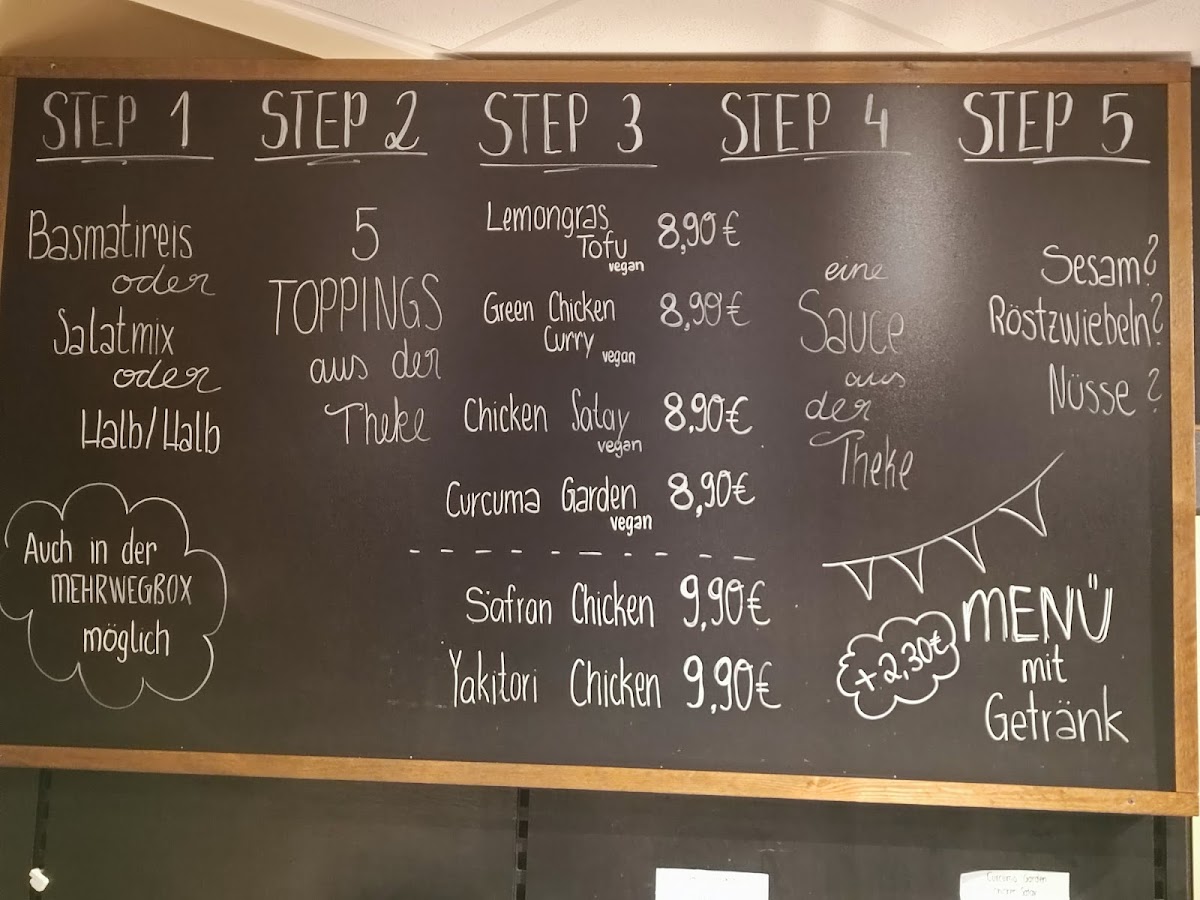 STEP 1
Basmatireis
oder
Salatmix
oder
Halb/Halb
Auch in der
MEHRWEGBOX
möglich
STEP 2
5
TOPPINGS
aus der
Theke
STEP 3
Lemongras
Tofu 8,90€
vegan
Green Chicken 8,90€
Curry
vegan
Chicken Satay 8,90€
vegan
Curcuma Garden 8,90€
vegan
Safran Chicken 9,90€
Yakitori Chicken 9,90€
STEP 4
eine
Sauce
aus
der
Theke
STEP 5
Sesam?
Röstzwiebeln?
Nüsse?
+2,30€
MENÜ
mit
Getränk